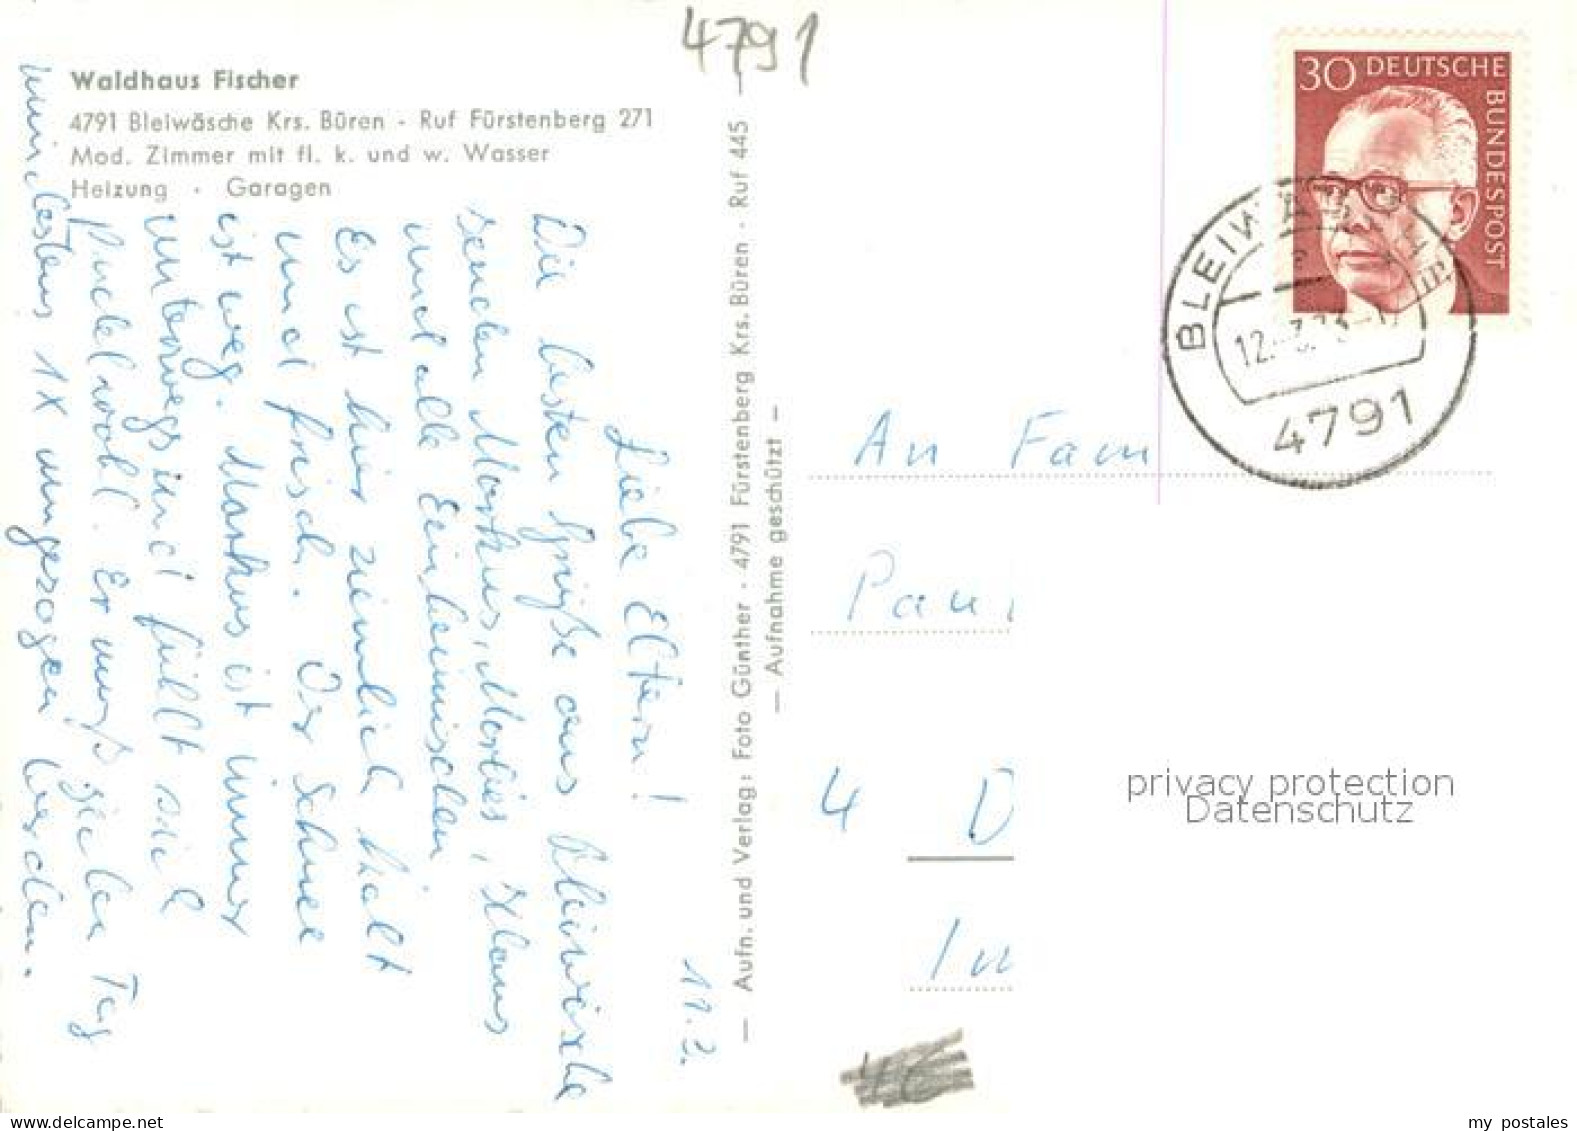 4791
Waldhaus Fischer
4791 Bleiwäsche Krs. Büren - Ruf Fürstenberg 271
Mod. Zimmer mit fl. k. und w. Wasser
Heizung · Garagen
11.3.
Liebe Eltern!
Die besten Grüße aus Bleiwäsche
senden Markus, Marlies, Klaus
und alle Einheimischen.
Es ist hier ziemlich kalt
und frisch. Der Schnee
ist weg. Markus ist immer
unterwegs und fühlt sich
pudelwohl. Er muß jeden Tag
mindestens 1x umgezogen werden.
— Aufn. und Verlag: Foto Günther · 4791 Fürstenberg Krs. Büren · Ruf 445
— Aufnahme geschützt —
30 DEUTSCHE
BUNDESPOST
BLEIWÄSCHE
4791
An Fam
Pau
4 D
In
46
privacy protection
Datenschutz
my postales
www.delcampe.net